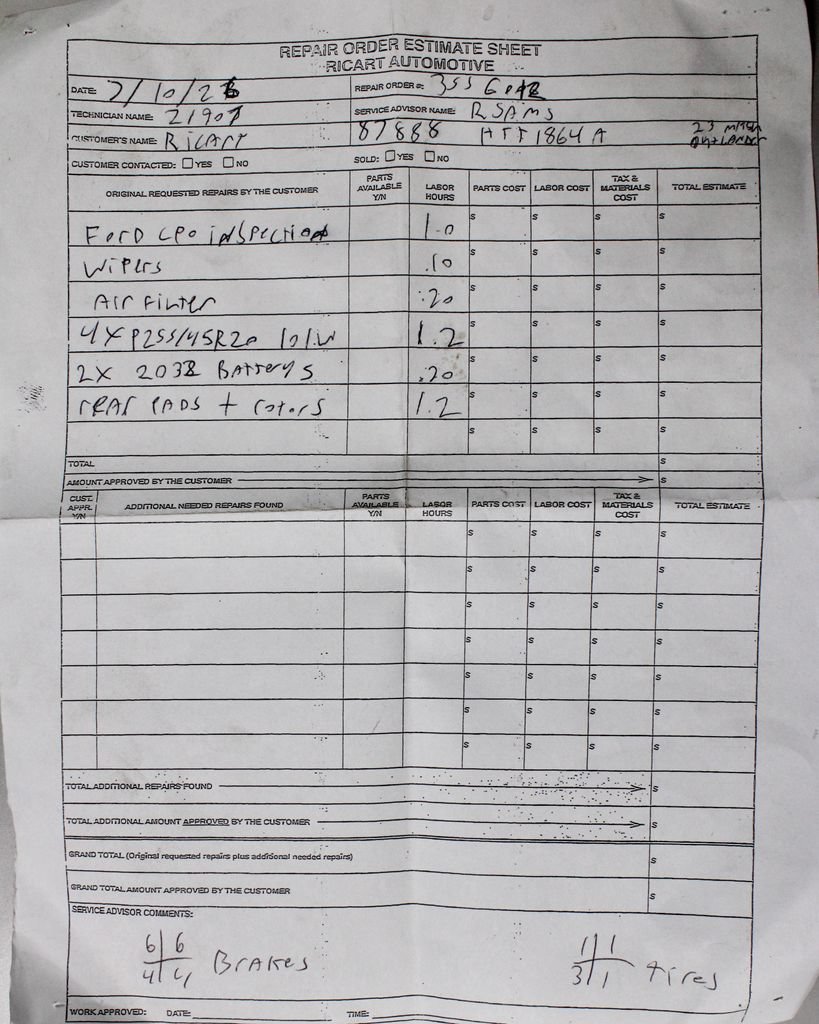 REPAIR ORDER ESTIMATE SHEET
RICART AUTOMOTIVE
DATE: 7/10/26 REPAIR ORDER #:
TECHNICIAN NAME: 21907 SERVICE ADVISOR NAME: RSAMS
CUSTOMER'S NAME: RICART 87888 HTT1864A 23
CUSTOMER CONTACTED: YES NO SOLD: YES NO
ORIGINAL REQUESTED REPAIRS BY THE CUSTOMER PARTS AVAILABLE Y/N LABOR HOURS PARTS COST LABOR COST TAX & MATERIALS COST TOTAL ESTIMATE
FORD CPO INSPECTION 1.0 $ $ $ $
WIPERS .10 $ $ $ $
AIR FILTER .20 $ $ $ $
4X P255/45R20 101W 1.2 $ $ $ $
2X 2032 BATTERYS .20 $ $ $ $
REAR PADS + ROTORS 1.2 $ $ $ $
$ $ $ $
TOTAL $
AMOUNT APPROVED BY THE CUSTOMER $
CUST. APPR. Y/N ADDITIONAL NEEDED REPAIRS FOUND PARTS AVAILABLE Y/N LABOR HOURS PARTS COST LABOR COST TAX & MATERIALS COST TOTAL ESTIMATE
$ $ $ $
$ $ $ $
$ $ $ $
$ $ $ $
$ $ $ $
$ $ $ $
$ $ $ $
TOTAL ADDITIONAL REPAIRS FOUND $
TOTAL ADDITIONAL AMOUNT APPROVED BY THE CUSTOMER $
GRAND TOTAL (Original requested repairs plus additional needed repairs) $
GRAND TOTAL AMOUNT APPROVED BY THE CUSTOMER $
SERVICE ADVISOR COMMENTS:
6 6 1 1
4 4 Brakes 3 1 tires
WORK APPROVED: DATE: TIME: